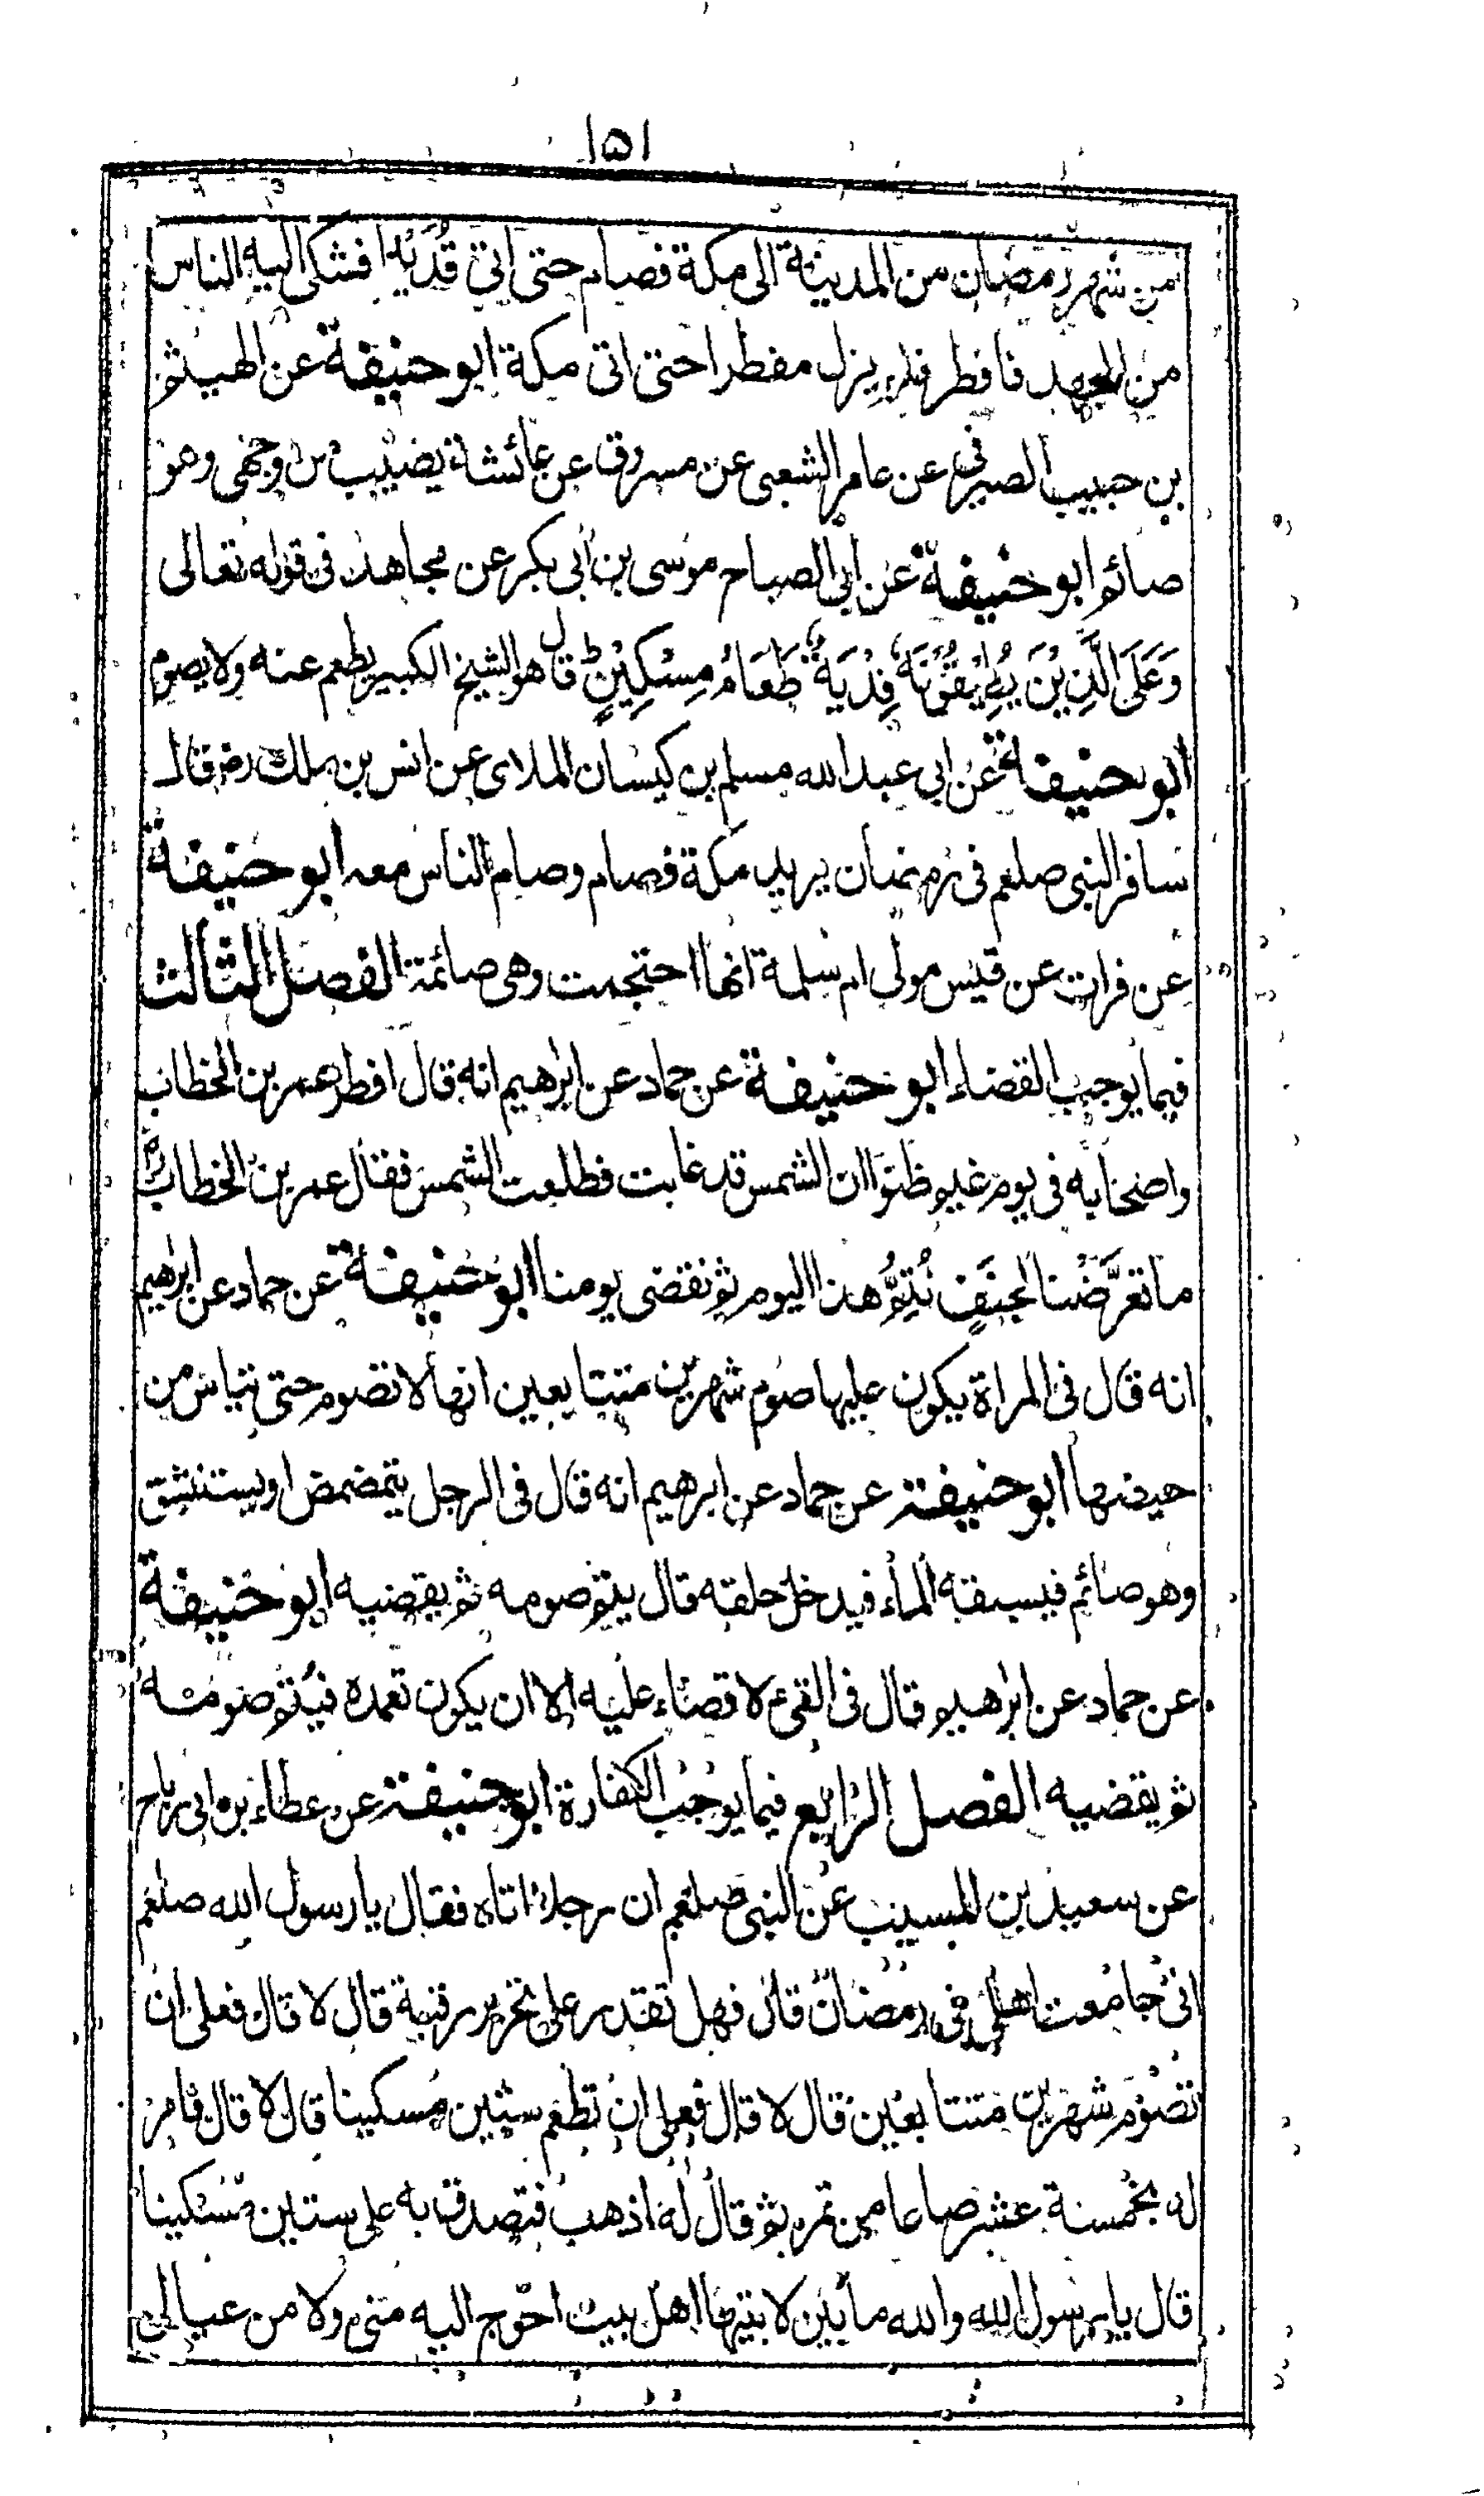 ١٥١
من شهر رمضان من المدينة الى مكة فصام حتى اتى قُدَيْدا فشكى اليه الناس
من الجهد فافطر فلم يزل مفطرا حتى اتى مكة ابو حنيفة عن الهيثم
بن حبيب الصيرفى عن عامر الشعبى عن مسروق عن عائشة يصيب من وجهى وهو
صائم ابو حنيفة عن ابى الصباح موسى بن ابى بكر عن مجاهد فى قوله تعالى
وَعَلَى الَّذِيْنَ يُطِيْقُوْنَهٗ فِدْيَةٌ طَعَامُ مِسْكِيْنٍ ط قال هو الشيخ الكبير يطعم عنه ولا يصوم
ابو حنيفة عن ابى عبد الله مسلم بن كيسان الملاى عن انس بن ملك رض قال
سافر النبى صلعم فى رمضان يريد مكة فصام وصام الناس معه ابو حنيفة
عن فرات عن قيس مولى ام سلمة انها احتجمت وهى صائمة الفصل الثالث
فيما يوجب القضاء ابو حنيفة عن حماد عن ابرهيم انه قال افطر عمر بن الخطاب
واصحابه فى يوم غيم ظنوا ان الشمس قد غابت فطلعت الشمس فقال عمر بن الخطاب رض
ما تعرَّضْنا لجنَفٍ نُتِمُّ هذا اليوم ثم نقضى يومنا ابو حنيفة عن حماد عن ابرهيم
انه قال فى المراة يكون عليها صوم شهرين متتابعين انها لا تصوم حتى تياس من
حيضها ابو حنيفة عن حماد عن ابرهيم انه قال فى الرجل يتمضمض او يستنشق
وهو صائم فيسبقه الماء فيدخل حلقه قال يتم صومه ثم يقضيه ابو حنيفة
عن حماد عن ابرهيم قال فى القىء لا قضاء عليه الا ان يكون تعمده فيُتم صومه
ثم يقضيه الفصل الرابع فيما يوجب الكفارة ابو حنيفة عن عطاء بن ابى رباح
عن سعيد بن المسيب عن النبى صلعم ان رجلا اتاه فقال يا رسول الله صلعم
انى جامعت اهلى فى رمضان قال فهل تقدر على تحرير رقبة قال لا قال فعلى ان
تصوم شهرين متتابعين قال لا قال فعلى ان تطعم ستين مسكينا قال لا قال فامر
له بخمسة عشر صاعا من تمر ثم قال له اذهب فتصدق به على ستين مسكينا
قال يا رسول الله والله ما بين لابتيها اهل بيت احوج اليه منى ولا من عيالى